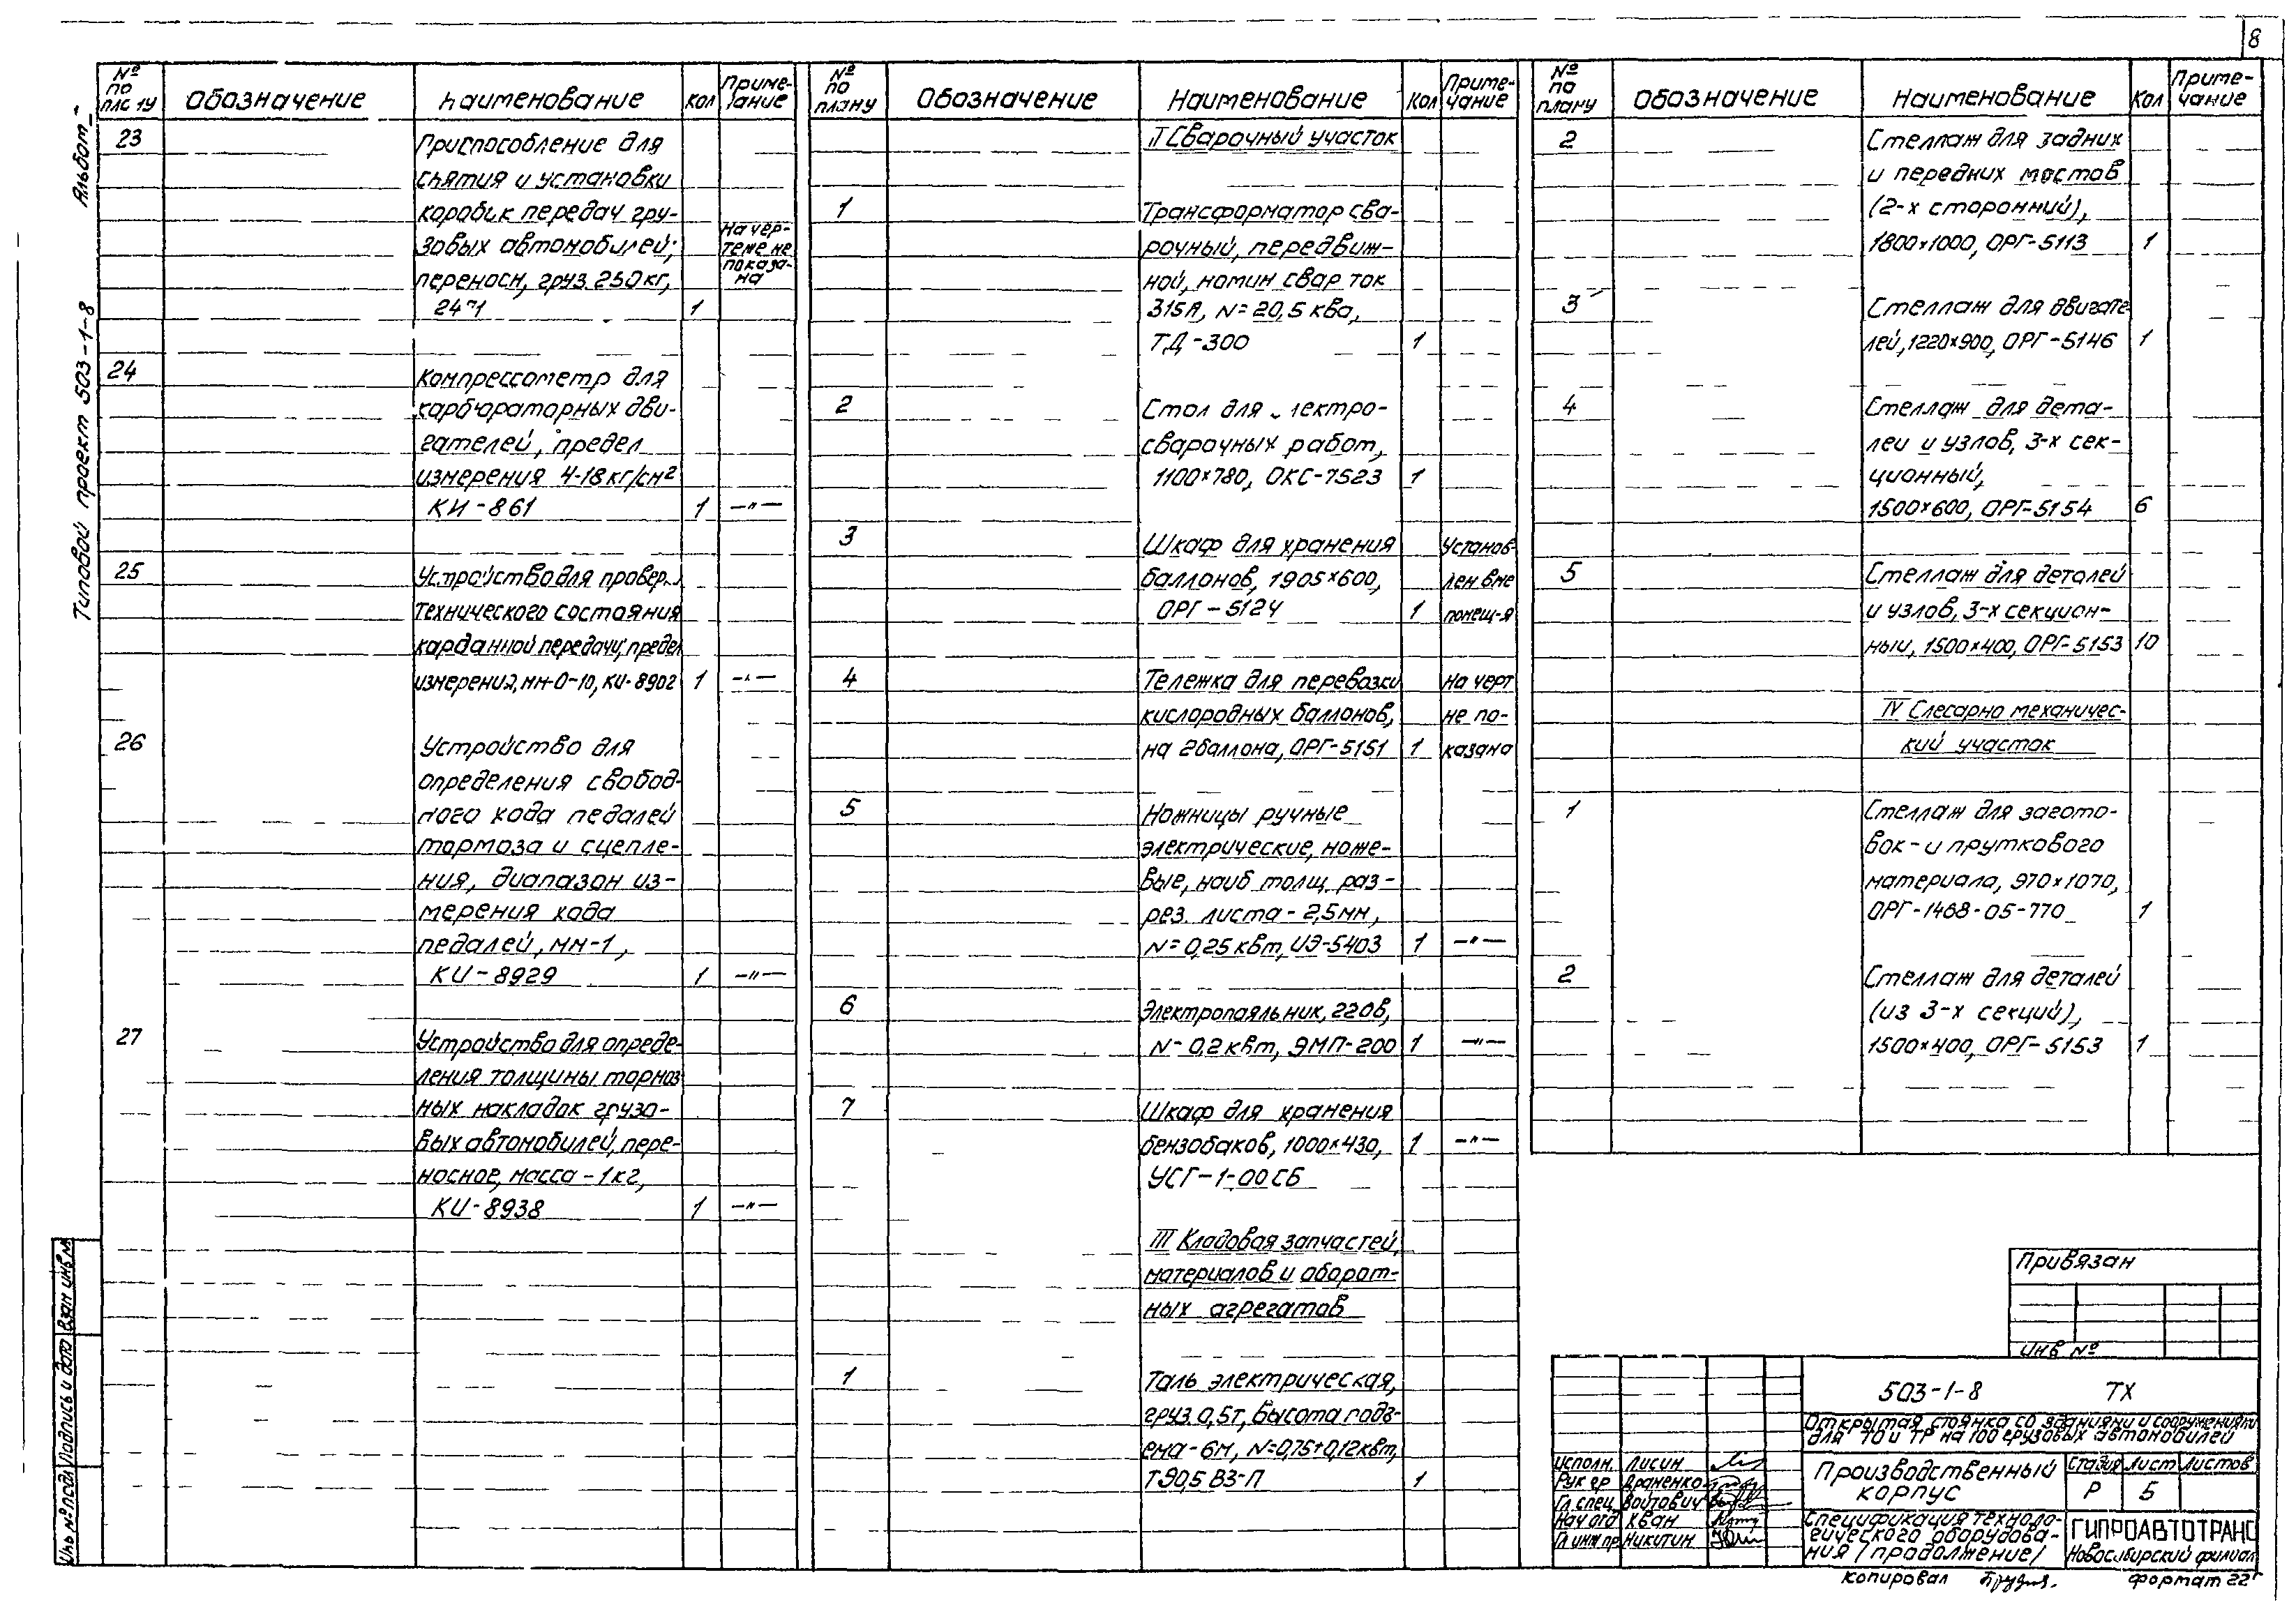 8
Альбом
Типовой проект 503-1-8
№ по плану
Обозначение
Наименование
Кол
Примечание
23
Приспособление для
снятия и установки
коробок передач гру-
зовых автомобилей;
переносн, груз. 250кг,
2471
1
На чер-
теже не
показа-
на
24
Компрессометр для
карбюраторных дви-
гателей, предел
измерения 4-18кг/см²
КИ-861
1
—"—
25
Устройство для провер.
технического состояния
карданной передачи; предел
измерения, мм-0-10, КИ-8902
1
—"—
26
Устройство для
определения свобод-
ного хода педалей
тормоза и сцепле-
ния, диапазон из-
мерения хода
педалей, мм-1,
КИ-8929
1
—"—
27
Устройство для опреде-
ления толщины тормоз
ных накладок грузо-
вых автомобилей, пере-
носное, масса-1кг,
КИ-8938
1
—"—
№
по
плану
Обозначение
Наименование
Кол
Приме-
чание
II Сварочный участок
1
Трансформатор сва-
рочный, передвиж-
ной, номин свар ток
315А, N=20,5 ква,
ТД-300
1
2
Стол для лектро-
сварочных работ,
1100×780, ОКС-7523
1
3
Шкаф для хранения
баллонов, 1905×600,
ОРГ-5124
1
Установ-
лен вне
помещ-я
4
Тележка для перевозки
кислородных баллонов,
на 2баллона, ОРГ-5151
1
На черт
не по-
казана
5
Ножницы ручные
электрические, ноже-
вые, наиб толщ. раз-
рез. листа-2,5мм,
N=0,25 квт, ИЭ-5403
1
—"—
6
Электропаяльник, 220в,
N-0,2 квт, ЭМП-200
1
—"—
7
Шкаф для хранения
бензобаков, 1000×430,
УСГ-1-00СБ
1
—"—
III Кладовая запчастей,
материалов и оборот-
ных агрегатов
1
Таль электрическая,
груз. 0,5т, высота подъ-
ема-6м, N=0,75+0,12квт,
ТЭ0,5 ВЗ-П
1
№
по
плану
Обозначение
Наименование
Кол
Приме-
чание
2
Стеллаж для задних
и передних мостов
(2-х сторонний),
1800×1000, ОРГ-5113
1
3
Стеллаж для двигате
лей, 1220×900, ОРГ-5146
1
4
Стеллаж для дета-
леи и узлов, 3-х сек-
ционный,
1500×600, ОРГ-5154
6
5
Стеллаж для деталей
и узлов, 3-х секцион-
ный, 1500×400, ОРГ-5153
10
IV Слесарно механичес-
кий участок
1
Стеллаж для загото-
вок-и пруткового
материала, 970×1070,
ОРГ-1468-05-770
1
2
Стеллаж для деталей
(из 3-х секций),
1500×400, ОРГ-5153
1
Привязан
Инв №
503-1-8 ТХ
Открытая стоянка со зданиями и сооружениями
для ТО и ТР на 100 грузовых автомобилей
Исполн. Лисин
Рук гр Драненко
Гл. спец. Войтович
Нач отд Хван
Гл инж пр Никитин
Производственный
корпус
Стадия Лист Листов
Р 5
Спецификация техноло-
гического оборудова-
ния /продолжение/
ГИПРОАВТОТРАНС
Новосибирский филиал
Копировал
формат 22г
Взам инв №
Подпись и дата
Инв № подл